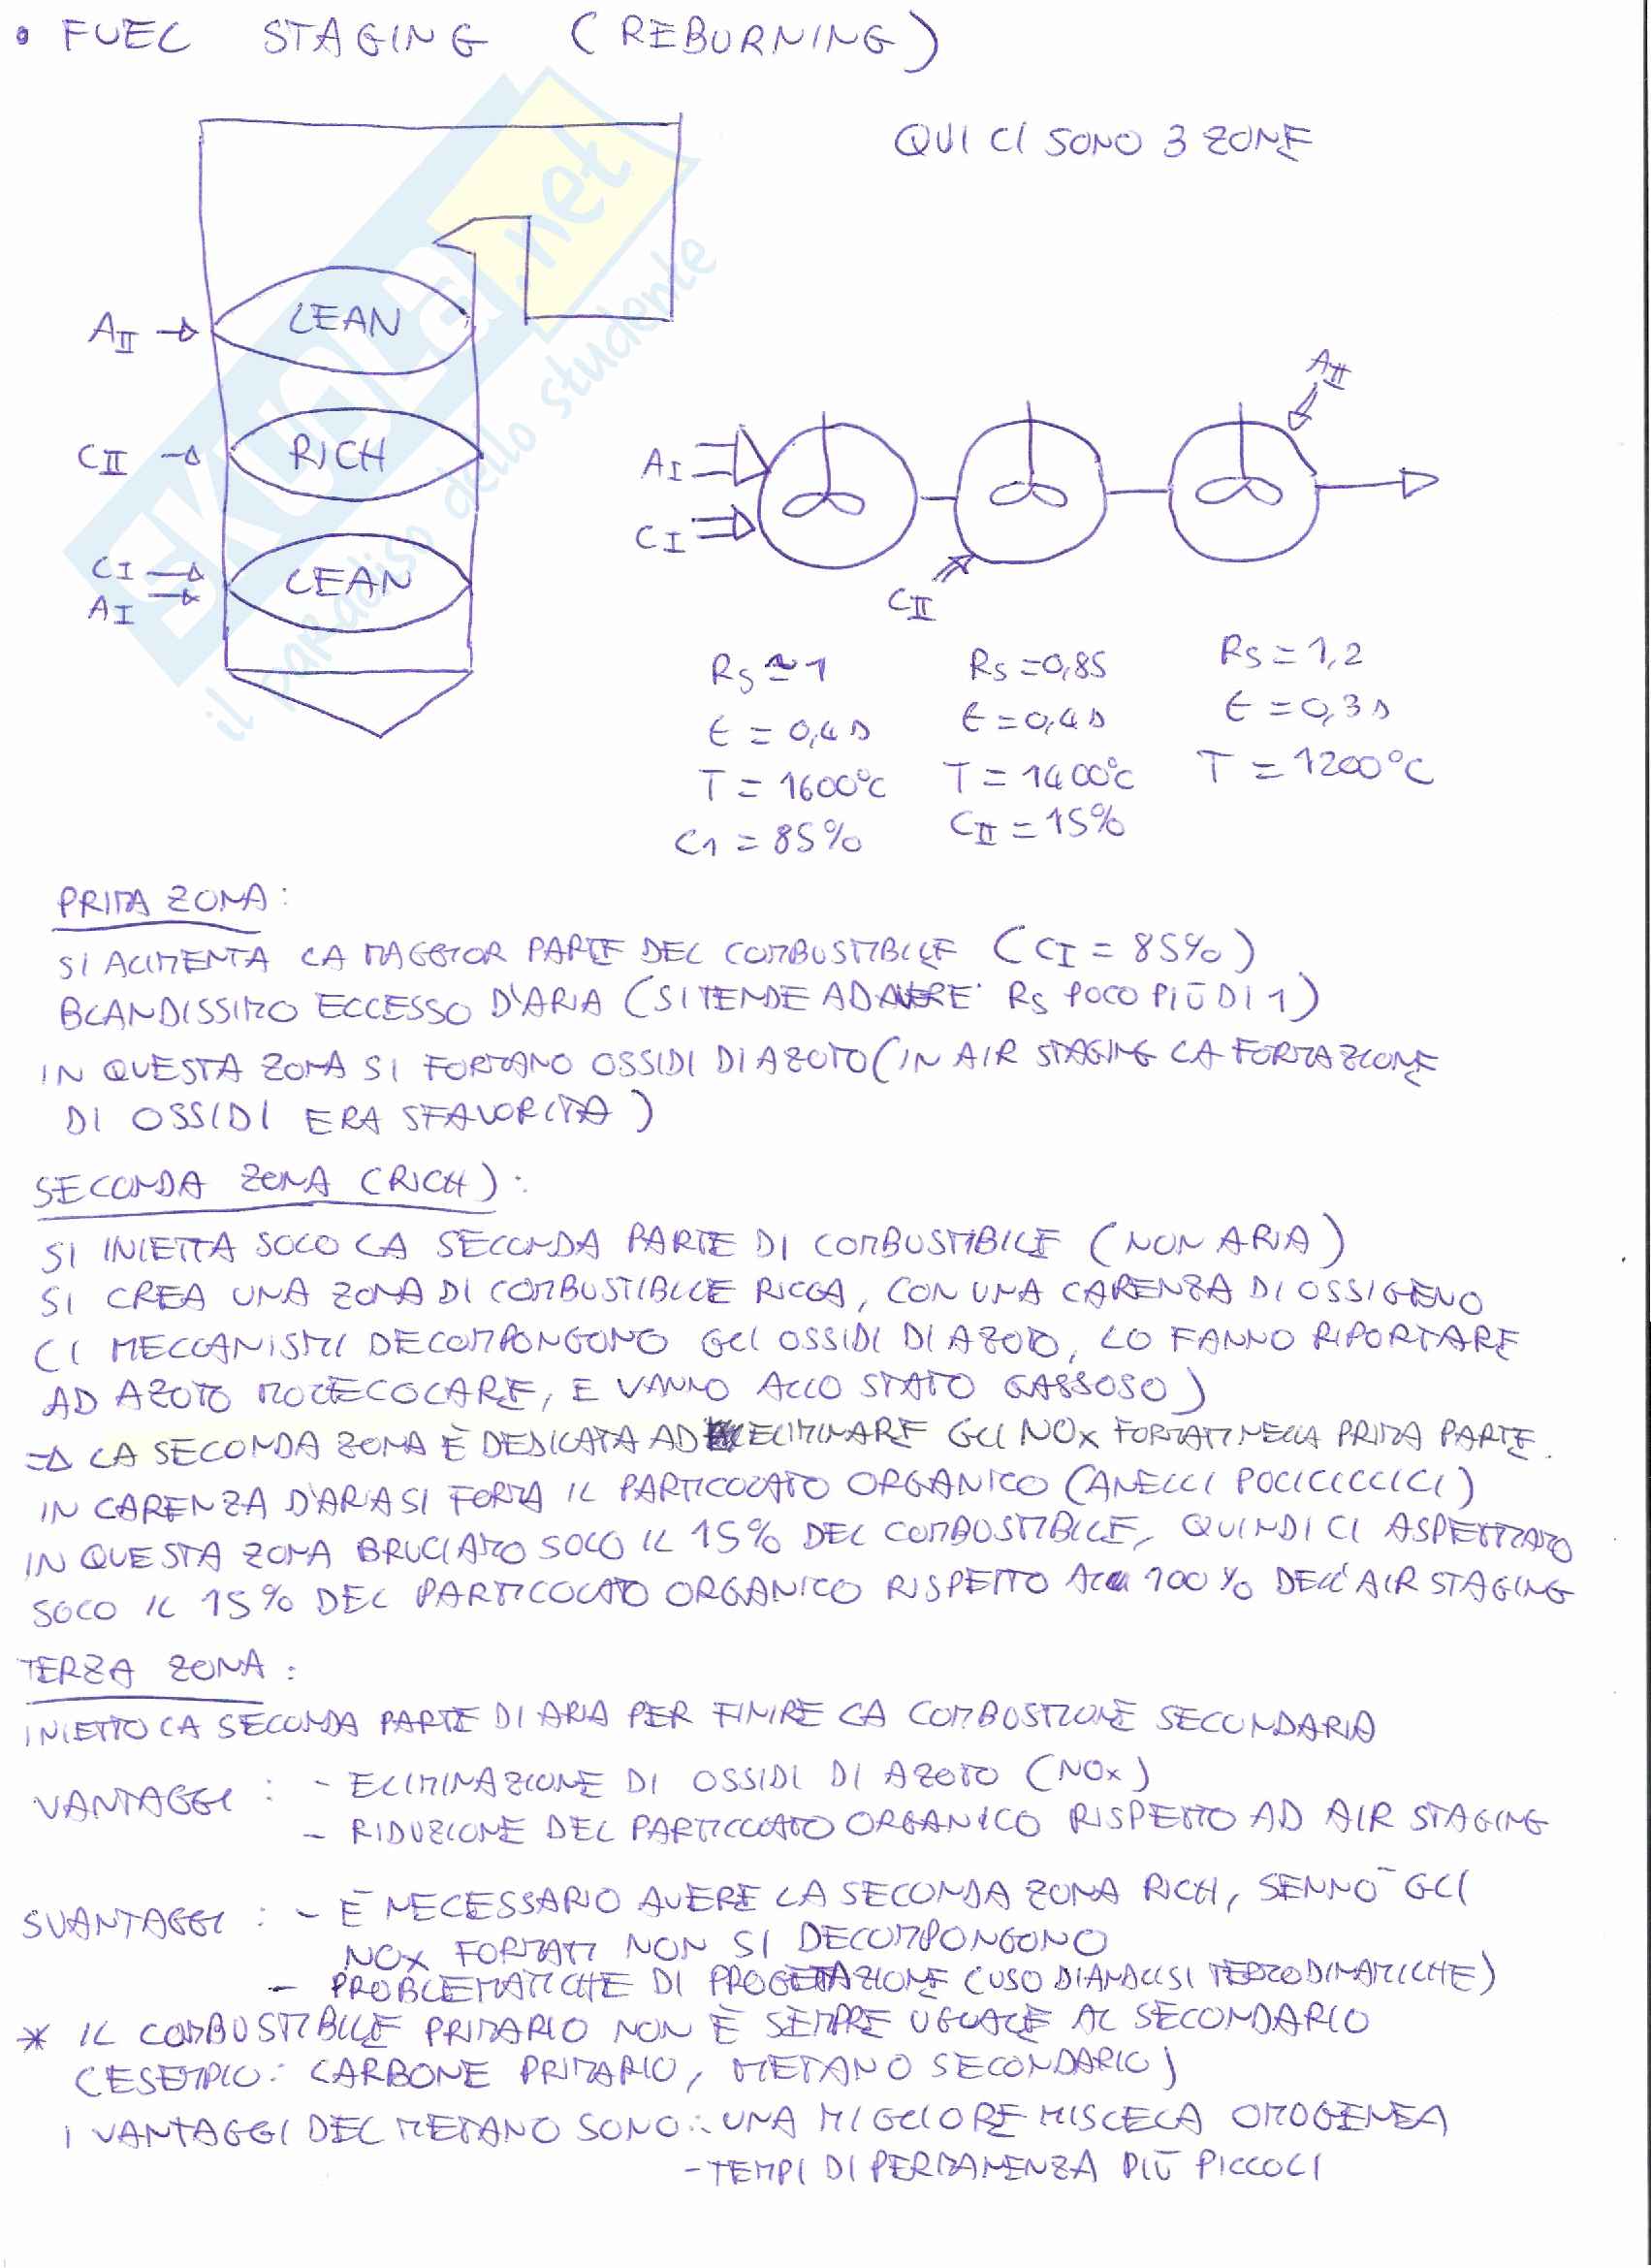 • FUEL STAGING (REBURNING)
QUI CI SONO 3 ZONE
LEAN
A_II →
RICH
C_II →
LEAN
C_I →
A_I →
SKUOLA.net
il paradiso dello studente
A_II
A_I
C_I
C_II
Rs ≃ 1
t = 0,4 s
T = 1600°C
C1 = 85%
Rs = 0,85
t = 0,4 s
T = 1400°C
C_II = 15%
Rs = 1,2
t = 0,3 s
T = 1200°C
PRIMA ZONA:
SI ALIMENTA LA MAGGIOR PARTE DEL COMBUSTIBILE (C_I = 85%)
BLANDISSIMO ECCESSO D'ARIA (SI TENDE AD AVERE Rs POCO PIÙ DI 1)
IN QUESTA ZONA SI FORMANO OSSIDI DI AZOTO (IN AIR STAGING LA FORMAZIONE
DI OSSIDI ERA SFAVORITA)
SECONDA ZONA (RICH):
SI INIETTA SOLO LA SECONDA PARTE DI COMBUSTIBILE (NON ARIA)
SI CREA UNA ZONA DI COMBUSTIBILE RICCA, CON UNA CARENZA DI OSSIGENO
(I MECCANISMI DECOMPONGONO GLI OSSIDI DI AZOTO, LO FANNO RIPORTARE
AD AZOTO MOLECOLARE, E VANNO ALLO STATO GASSOSO)
⇒ LA SECONDA ZONA È DEDICATA AD ELIMINARE GLI NOx FORMATI NELLA PRIMA PARTE.
IN CARENZA D'ARIA SI FORMA IL PARTICOLATO ORGANICO (ANELLI POLICICLICI)
IN QUESTA ZONA BRUCIAMO SOLO IL 15% DEL COMBUSTIBILE, QUINDI CI ASPETTIAMO
SOLO IL 15% DEL PARTICOLATO ORGANICO RISPETTO AL 100% DELL'AIR STAGING
TERZA ZONA:
INIETTO LA SECONDA PARTE DI ARIA PER FINIRE LA COMBUSTIONE SECONDARIA
VANTAGGI: - ELIMINAZIONE DI OSSIDI DI AZOTO (NOx)
- RIDUZIONE DEL PARTICOLATO ORGANICO RISPETTO AD AIR STAGING
SVANTAGGI: - È NECESSARIO AVERE LA SECONDA ZONA RICH, SENNÒ GLI
NOx FORMATI NON SI DECOMPONGONO
- PROBLEMATICHE DI PROGETTAZIONE (USO DI ANALISI TERMODINAMICHE)
* IL COMBUSTIBILE PRIMARIO NON È SEMPRE UGUALE AL SECONDARIO
(ESEMPIO: CARBONE PRIMARIO, METANO SECONDARIO)
I VANTAGGI DEL METANO SONO: - UNA MIGLIORE MISCELA OMOGENEA
- TEMPI DI PERMANENZA PIÙ PICCOLI